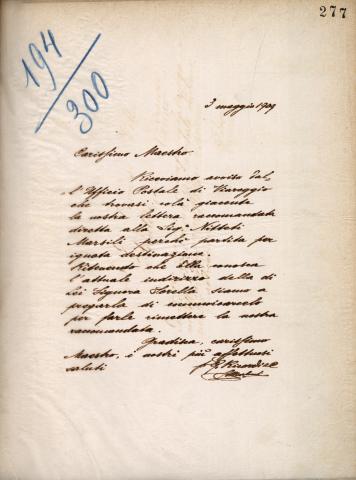 277
194/300
3 maggio 1909
Carissimo Maestro
Riceviamo avviso dal-
l'Ufficio Postale di Viareggio
che trovasi colà giacente
la nostra lettera raccomandata
diretta alla Sig.ª Nitteti
Marsili perchè partita per
ignota destinazione.
Ritenendo che Ella conosca
l'attuale indirizzo della di
Lei Signora Sorella siamo a
pregarla di comunicarcelo
per farle rimettere la nostra
raccomandata.
Gradisca, carissimo
Maestro, i nostri più affettuosi
saluti
G. Ricordi & C.